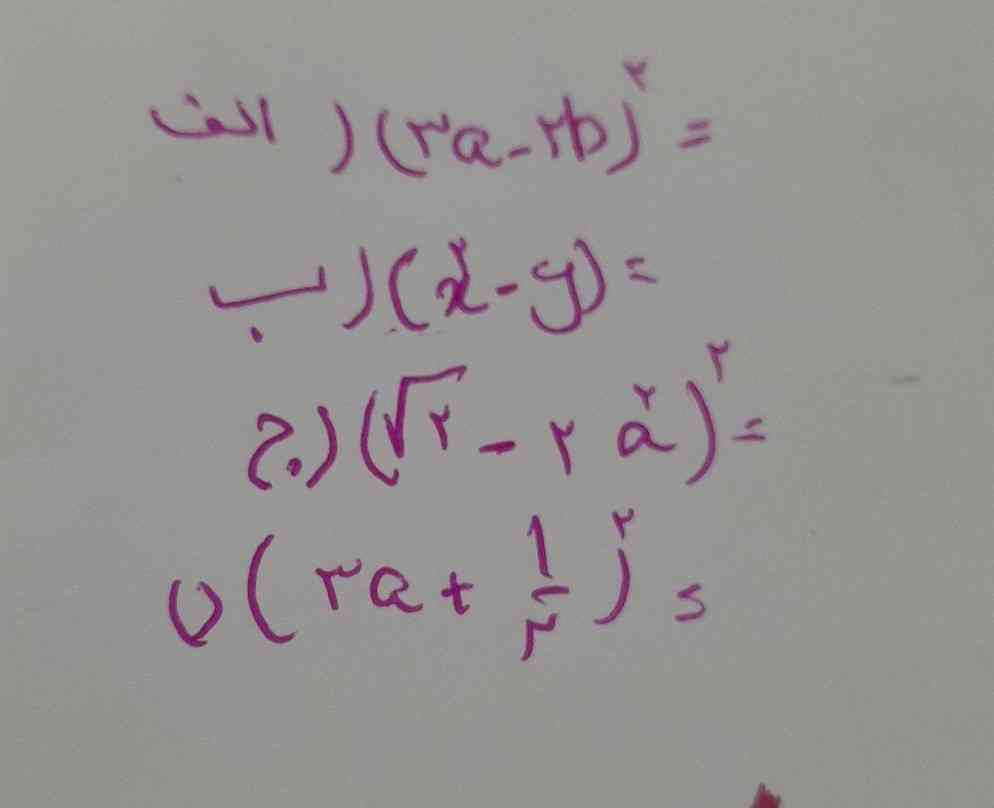 الف) (۳a-۲b)^۲ =
ب) (x^۲-y) =
ج) (√۲ - ۲a^۲)^۲ =
د) (۳a + ۱/۲)^۲ =